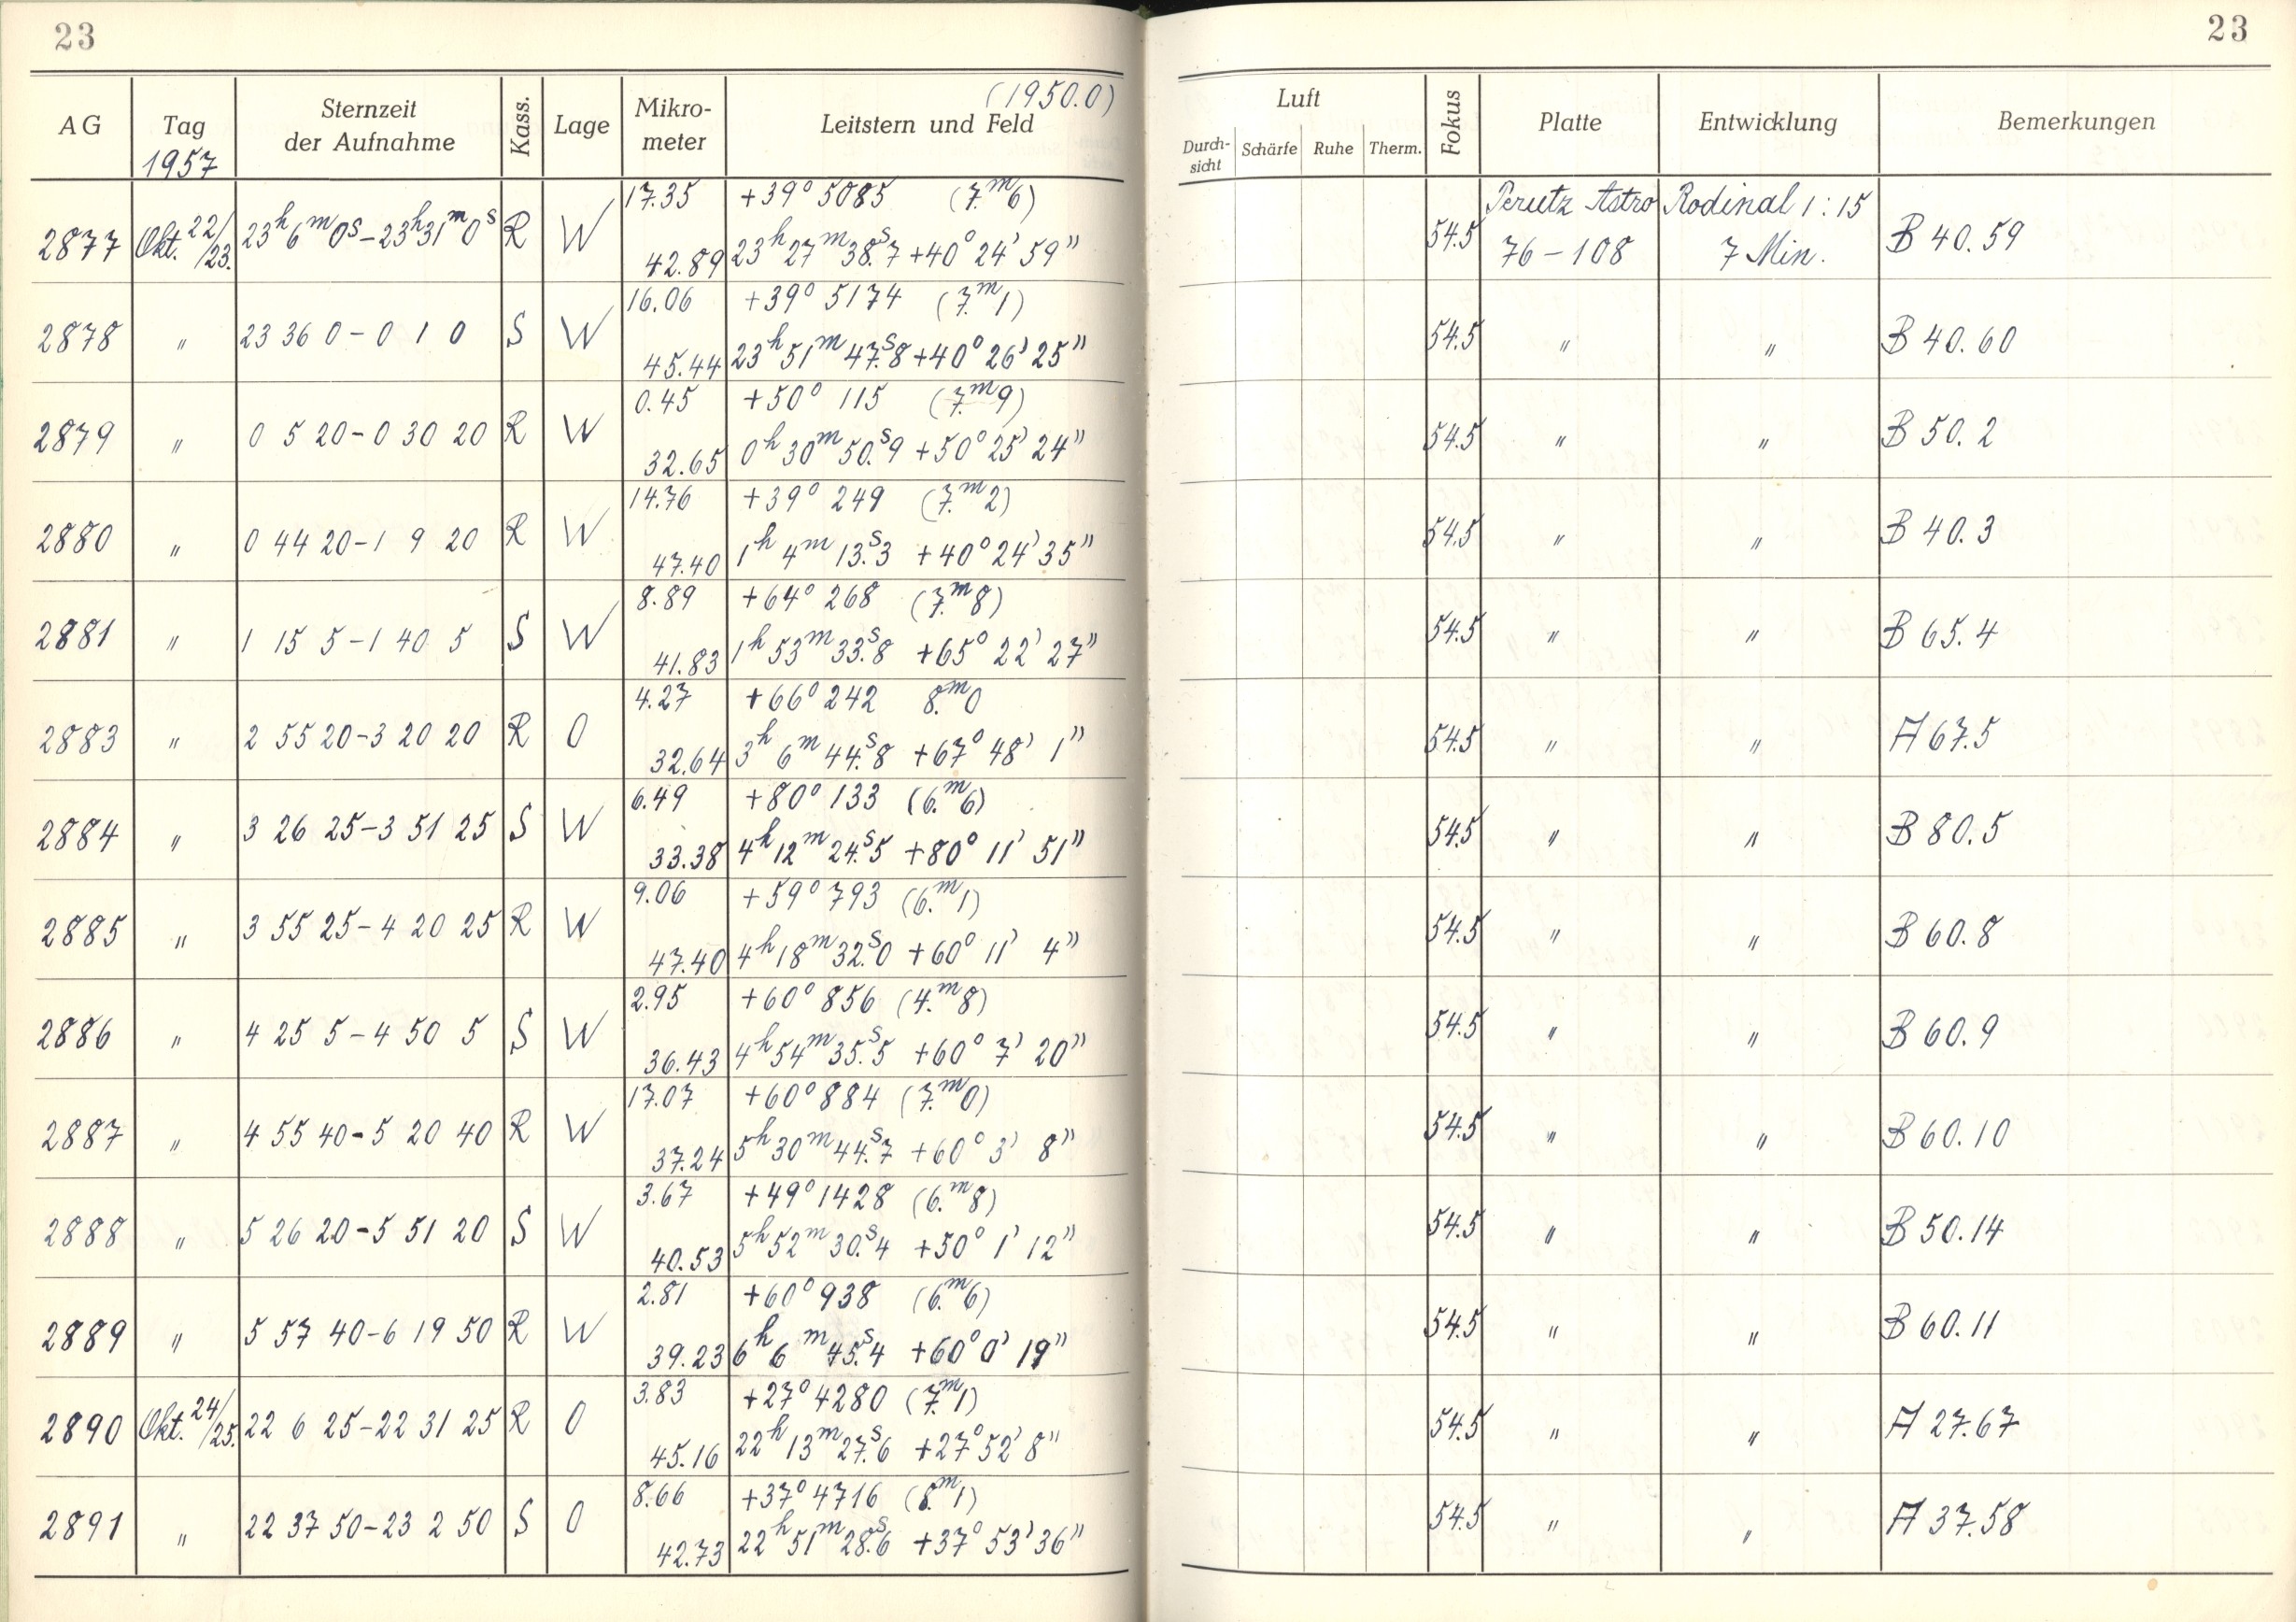 23
23
(1950.0)
AG Tag Sternzeit der Aufnahme Kass. Lage Mikro-meter Leitstern und Feld Luft Durch-sicht Schärfe Ruhe Therm. Fokus Platte Entwicklung Bemerkungen
1957
17.35 +39° 5085 (7.ᵐ6) Perutz Astro Rodinal 1:15
2877 Okt. 22/23. 23ʰ6ᵐ0ˢ–23ʰ31ᵐ0ˢ R W 42.89 23ʰ 27ᵐ 38.ˢ7 +40° 24' 59" 54.5 76–108 7 Min. B 40.59
16.06 +39° 5174 (7.ᵐ1)
2878 " 23 36 0 – 0 1 0 S W 45.44 23ʰ 51ᵐ 47.ˢ8 +40° 26' 25" 54.5 " " B 40.60
0.45 +50° 115 (7.ᵐ9)
2879 " 0 5 20 – 0 30 20 R W 32.65 0ʰ 30ᵐ 50.ˢ9 +50° 25' 24" 54.5 " " B 50.2
14.76 +39° 249 (7.ᵐ2)
2880 " 0 44 20 – 1 9 20 R W 47.40 1ʰ 4ᵐ 13.ˢ3 +40° 24' 35" 54.5 " " B 40.3
8.89 +64° 268 (7.ᵐ8)
2881 " 1 15 5 – 1 40 5 S W 41.83 1ʰ 53ᵐ 33.ˢ8 +65° 22' 27" 54.5 " " B 65.4
4.27 +66° 242 8.ᵐ0
2883 " 2 55 20 – 3 20 20 R O 32.64 3ʰ 6ᵐ 44.ˢ8 +67° 48' 1" 54.5 " " A 67.5
6.49 +80° 133 (6.ᵐ6)
2884 " 3 26 25 – 3 51 25 S W 33.38 4ʰ 12ᵐ 24.ˢ5 +80° 11' 51" 54.5 " " B 80.5
9.06 +59° 793 (6.ᵐ1)
2885 " 3 55 25 – 4 20 25 R W 47.40 4ʰ 18ᵐ 32.ˢ0 +60° 11' 4" 54.5 " " B 60.8
2.95 +60° 856 (4.ᵐ8)
2886 " 4 25 5 – 4 50 5 S W 36.43 4ʰ 54ᵐ 35.ˢ5 +60° 7' 20" 54.5 " " B 60.9
17.07 +60° 884 (7.ᵐ0)
2887 " 4 55 40 – 5 20 40 R W 37.24 5ʰ 30ᵐ 44.ˢ7 +60° 3' 8" 54.5 " " B 60.10
3.67 +49° 1428 (6.ᵐ8)
2888 " 5 26 20 – 5 51 20 S W 40.53 5ʰ 52ᵐ 30.ˢ4 +50° 1' 12" 54.5 " " B 50.14
2.81 +60° 938 (6.ᵐ6)
2889 " 5 57 40 – 6 19 50 R W 39.23 6ʰ 6ᵐ 45.ˢ4 +60° 0' 19" 54.5 " " B 60.11
3.83 +27° 4280 (7.ᵐ1)
2890 Okt. 24/25. 22 6 25 – 22 31 25 R O 45.16 22ʰ 13ᵐ 27.ˢ6 +27° 52' 8" 54.5 " " A 27.67
8.66 +37° 4716 (8.ᵐ1)
2891 " 22 37 50 – 23 2 50 S O 42.73 22ʰ 51ᵐ 28.ˢ6 +37° 53' 36" 54.5 " " A 37.58